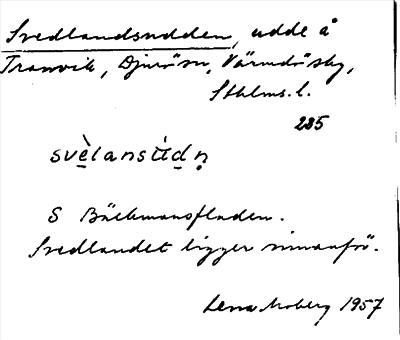 Svedlandsudden, udde å
Tranvik, Djurö sn, Värmdö sbg,
Sthlms. l.
235
svèlansùdn̥
S Bäckmansfladen.
Svedlandet ligger innanför.
Lena Moberg 1957